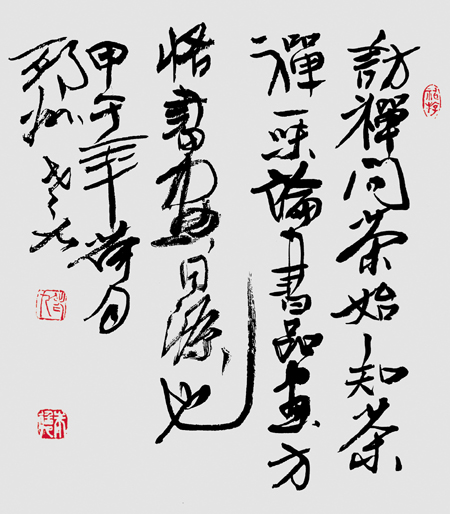 訪禪問茶始知茶
禪一味論書品畫方
悟書畫同源也
甲午年荷月
邢州老九